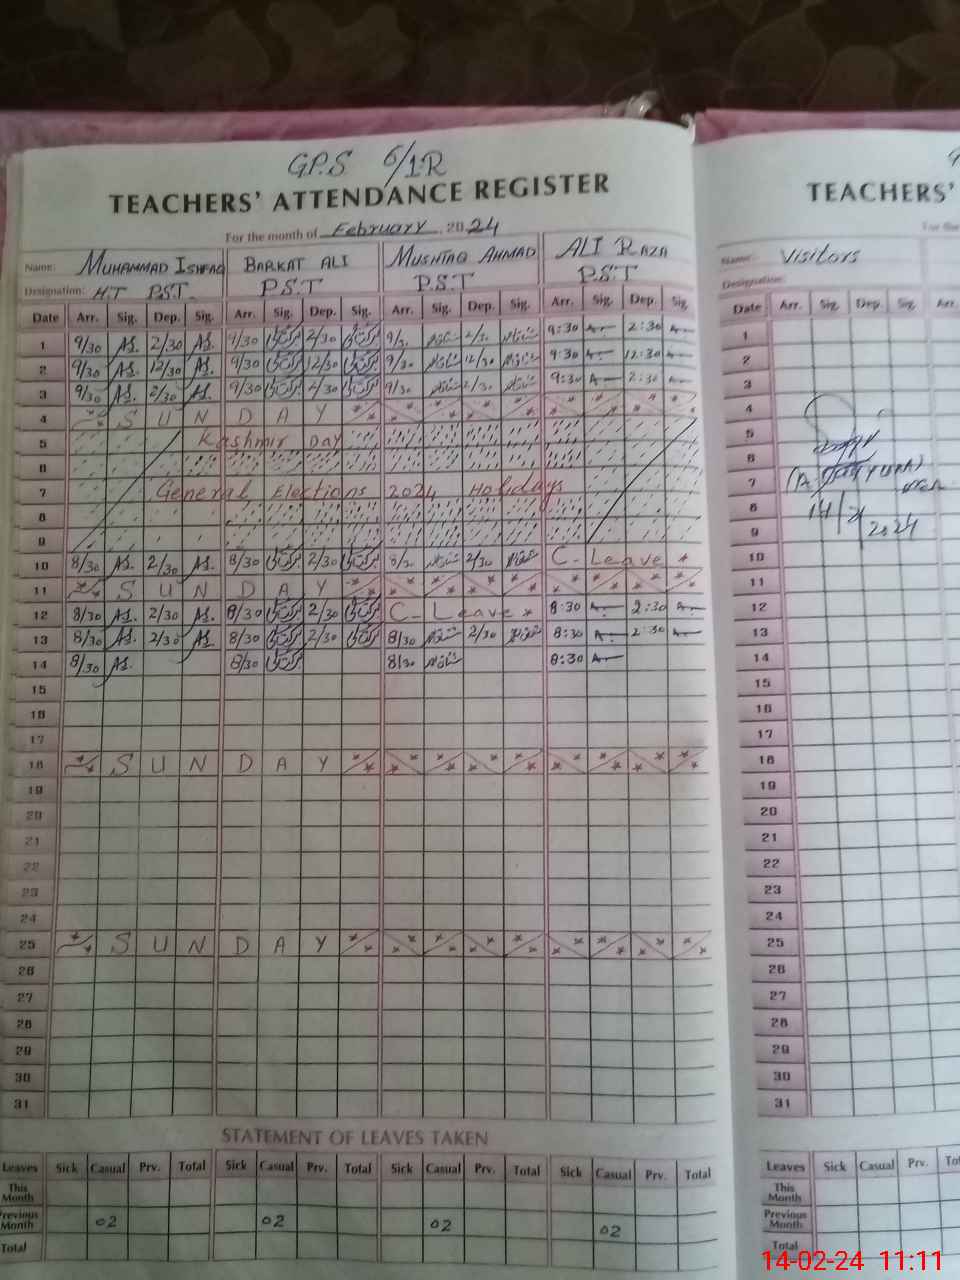 G.P.S 6/1.R
TEACHERS' ATTENDANCE REGISTER
For the month of February 2024
Name: MUHAMMAD ISHFAQ BARKAT ALI MUSHTAQ AHMAD ALI RAZA
Designation: H.T P.S.T. P.S.T P.S.T P.S.T
Date Arr. Sig. Dep. Sig. Arr. Sig. Dep. Sig. Arr. Sig. Dep. Sig. Arr. Sig. Dep. Sig.
1 9/30 2/30 9/30 2/30 9/30 2/30 9:30 2:30
2 9/30 12/30 9/30 12/30 9/30 12/30 9:30 12:30
3 9/30 2/30 9/30 2/30 9/30 2/30 9:30 2:30
4 SUNDAY
5 Kashmir Day
6
7 General Elections 2024 Holidays
8
9
10 8/30 2/30 8/30 2/30 8/30 2/30 C-Leave
11 SUNDAY
12 8/30 2/30 8/30 2/30 C-Leave 8:30 2:30
13 8/30 2/30 8/30 2/30 8/30 2/30 8:30 2:30
14 8/30 8/30 8/30 8:30
15
16
17
18 SUNDAY
19
20
21
22
23
24
25 SUNDAY
26
27
28
29
30
31
STATEMENT OF LEAVES TAKEN
Leaves Sick Casual Prv. Total Sick Casual Prv. Total Sick Casual Prv. Total Sick Casual Prv. Total
This Month
Previous Month 02 02 02 02
Total
TEACHERS'
For the
Name: Visitors
Designation:
Date Arr. Sig. Dep. Sig. Arr.
1
2
3
4
5
6
7
8
9
10
11
12
13
14
15
16
17
18
19
20
21
22
23
24
25
26
27
28
29
30
31
14/2/2024
Leaves Sick Casual Prv.
This Month
Previous Month
Total
14-02-24 11:11